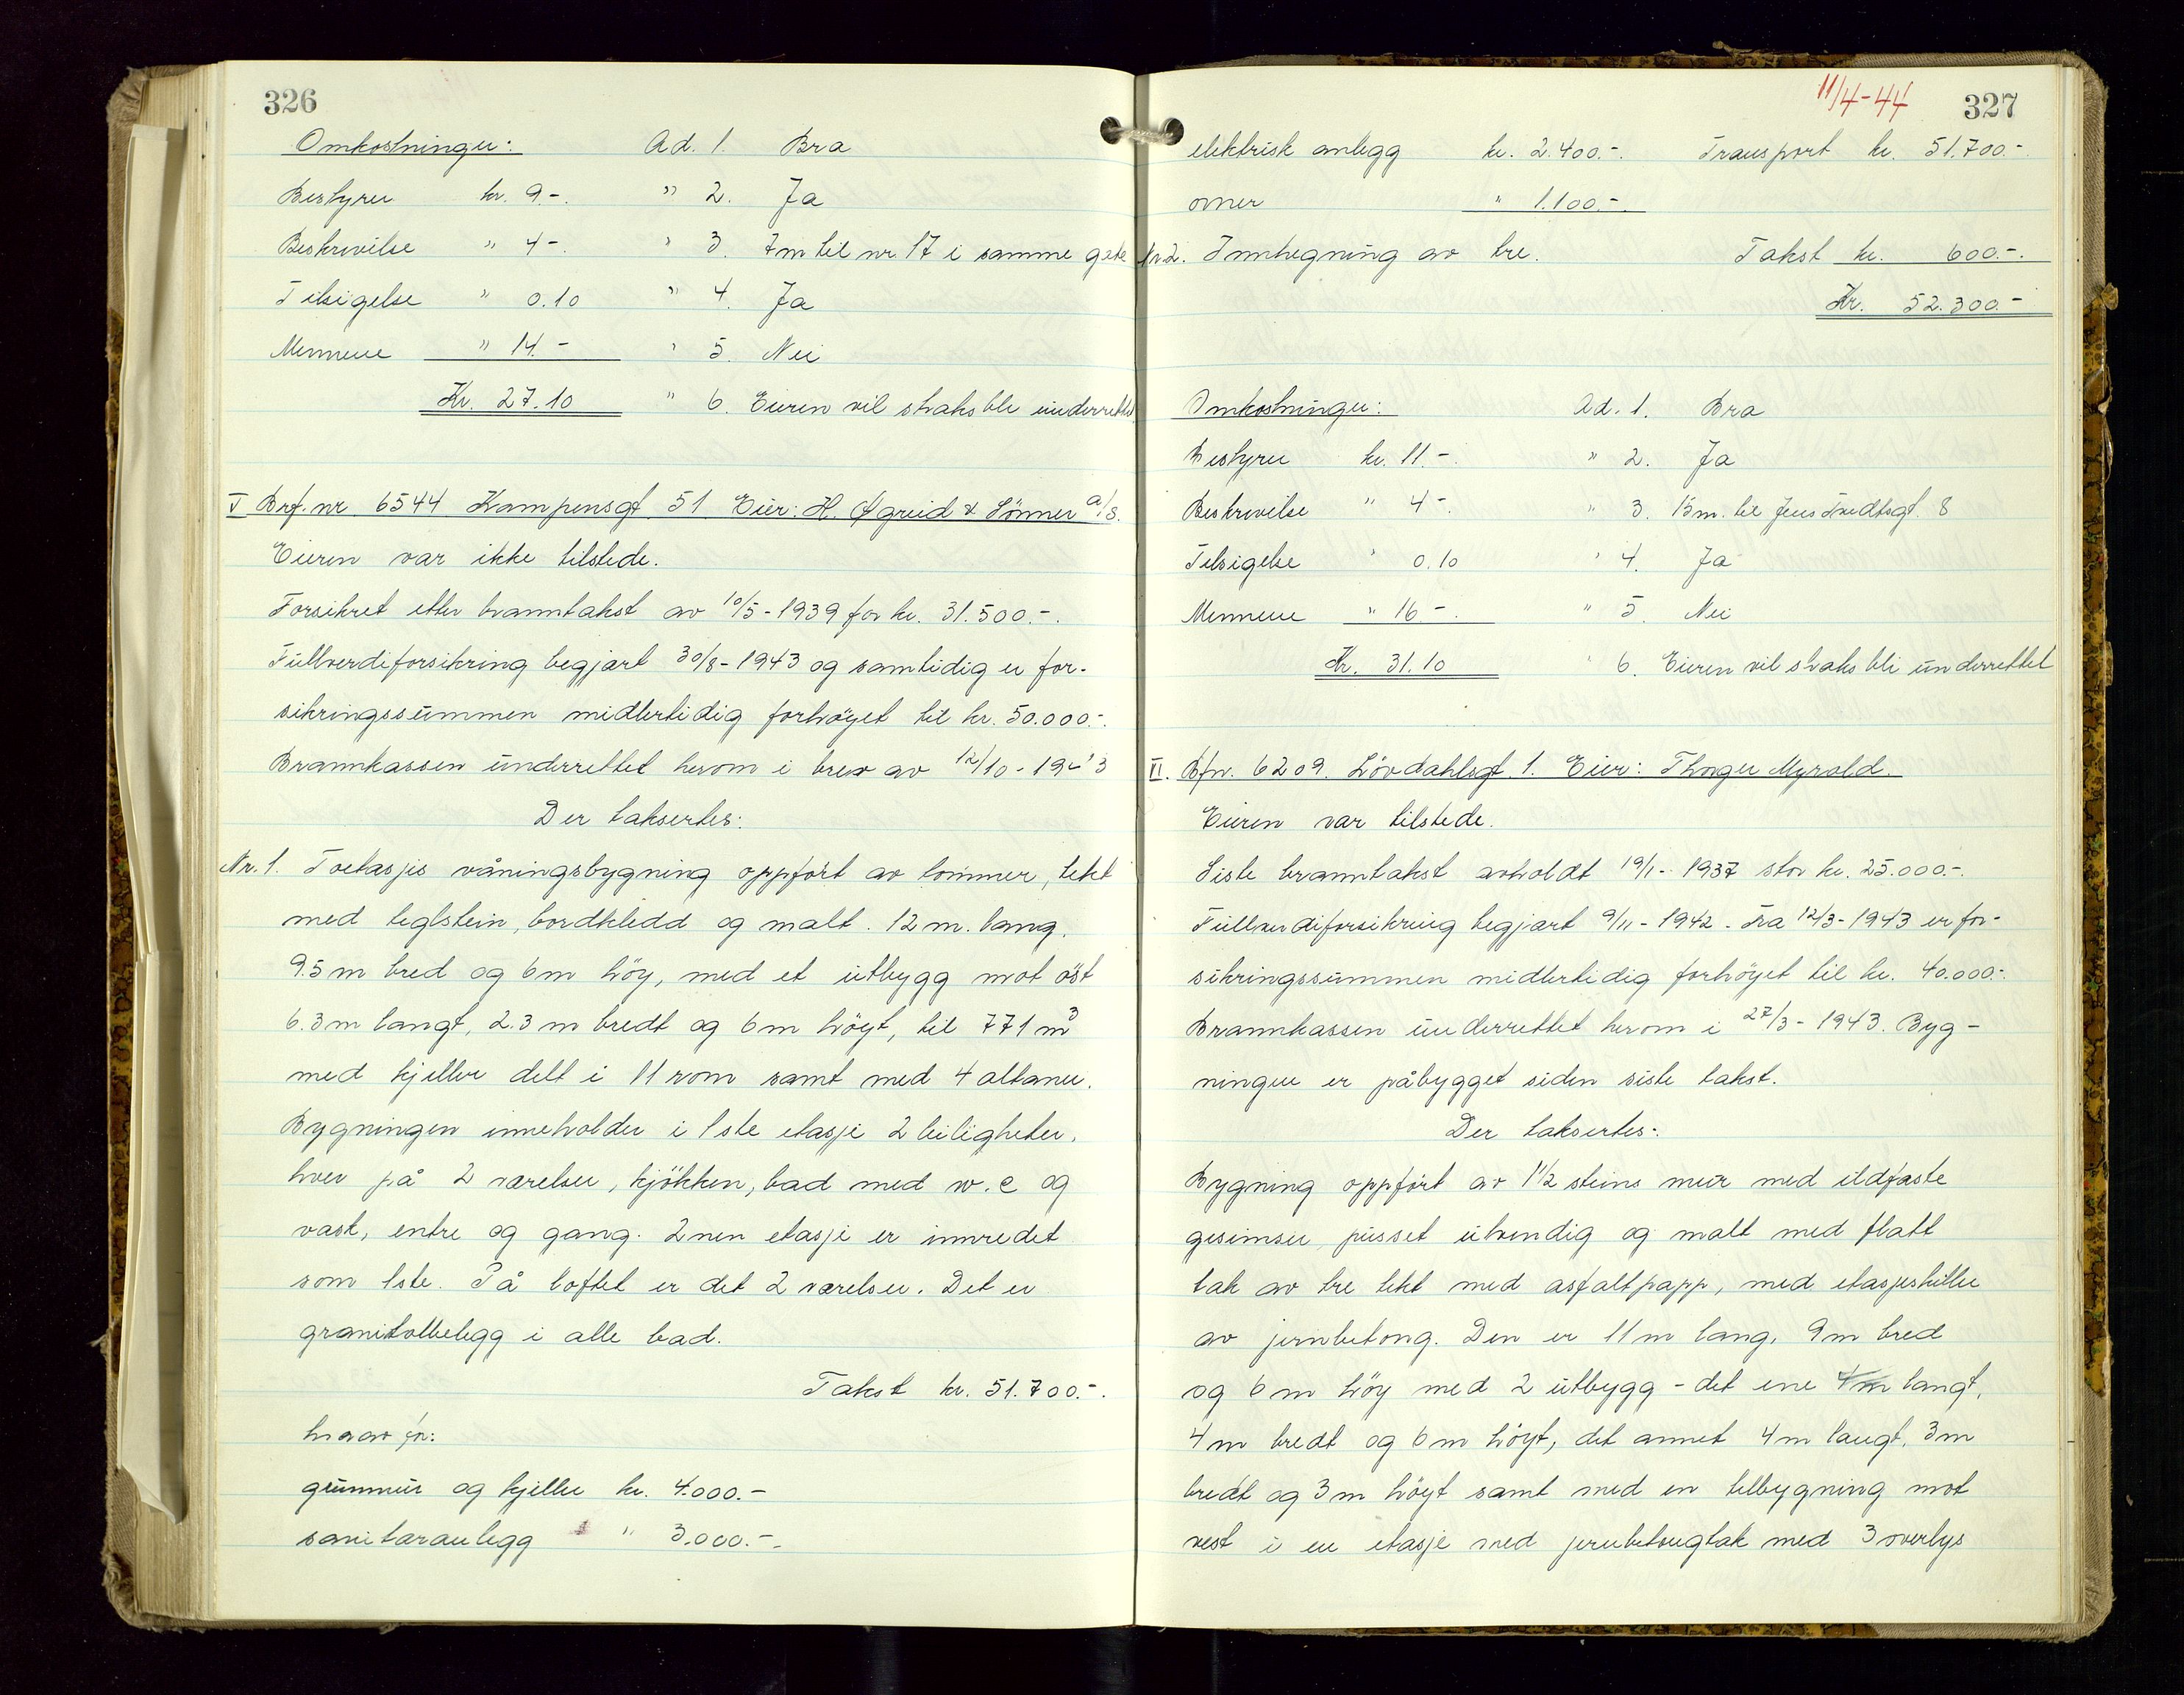 326
Omkostninger: Ad. 1. Bra
Bestyrer kr. 9.-. " 2. Ja
Beskrivelse " 4-. " 3. 7m til nr 17 i samme gate
Tilsigelse " 0.10 " 4. Ja
Mennene " 14.- " 5. Nei
Kr. 27.10 " 6. Eieren vil straks bli underrettet
V Brf. nr 6544 Kampensgt. 51 Eier: H. Øgreid & Sönner a/s.
Eieren var ikke tilstede.
Forsikret etter branntakst av 10/5-1939 for kr. 31.500.-.
Fullverdiforsikring begjært 30/8-1943 og samtidig er for-
sikringssummen midlertidig forhöyet til kr. 50.000.-.
Brannkassen underrettet herom i brev av 12/10-1943
Der taksertes:
Nr. 1. Toetasjes våningsbygning oppfört av tömmer, tekt
med teglstein, bordkledd og malt. 12 m. lang.
9.5 m bred og 6 m höy, med et utbygg mot öst
6.3 m langt, 2.3 m bredt og 6 m höyt, til 771 m³
med kjeller delt i 11 rom samt med 4 altaner.
Bygningen inneholder i 1ste etasje 2 leiligheter,
hver på 2 værelser, kjökken, bad med w.c og
vask, entre og gang. 2nen etasje er innredet
som 1ste. På loftet er det 2 værelser. Det er
granitolbelegg i alle bad.
Takst kr. 51.700.-.
hvorav for:
grunnmur og kjeller kr. 4.000.-
sanitæranlegg " 3.000.-.
11/4-44 327
elektrisk anlegg kr. 2.400.-. Transport kr. 51.700.-.
ovner " 1.100.-.
Nr 2. Innhegning av tre. Takst kr. 600.-.
Kr. 52.300.-
Omkostninger: Ad. 1. Bra
Bestyrer kr. 11.-. " 2. Ja
Beskrivelse " 4-. " 3. 15m. til Jens Tvedtsgt. 8
Tilsigelse " 0.10 " 4. Ja
Mennene " 16-. " 5. Nei
Kr. 31.10 " 6. Eieren vil straks bli underrettet
VI. Bfnr. 6209. Lövdahlsgt. 1. Eier: Thorger Myrold.
Eieren var tilstede.
Siste branntakst avholdt 19/1-1937 stor kr. 25.000.-.
Fullverdiforsikring begjært 9/11-1942. Fra 12/3-1943 er for-
sikringssummen midlertidig forhöyet til kr. 40.000.-.
Brannkassen underrettet herom i 27/3-1943. Byg-
ningen er påbygget siden siste takst.
Der taksertes:
Bygning oppfört av 1 1/2 steins mur med ildfaste
gesimser pusset utvendig og malt med flatt
tak av tre tekt med asfaltpapp, med etasjeskiller
av jernbetong. Den er 11 m lang, 9 m bred
og 6 m höy med 2 utbygg - det ene 4m langt,
4 m bredt og 6 m höyt, det annet 4 m langt, 3 m
bredt og 3 m höyt samt med en tilbygning mot
vest i en etasje med jernbetongtak med 3 overlys